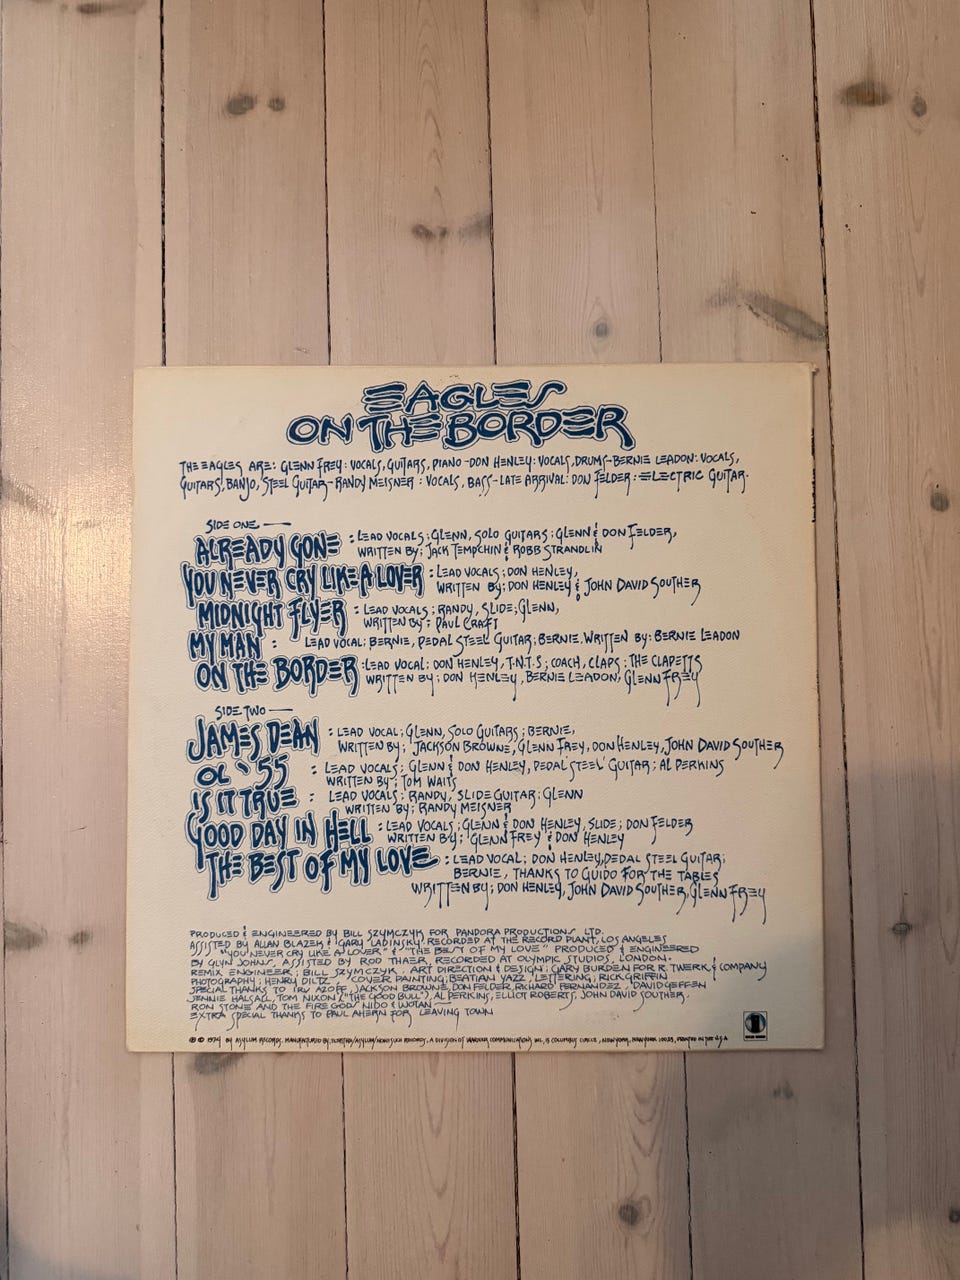 EAGLES
ON THE BORDER
THE EAGLES ARE: GLENN FREY: VOCALS, GUITARS, PIANO - DON HENLEY: VOCALS, DRUMS - BERNIE LEADON: VOCALS,
GUITARS, BANJO, STEEL GUITAR - RANDY MEISNER: VOCALS, BASS - LATE ARRIVAL: DON FELDER: ELECTRIC GUITAR.
SIDE ONE —
ALREADY GONE : LEAD VOCALS; GLENN, SOLO GUITARS; GLENN & DON FELDER,
WRITTEN BY; JACK TEMPCHIN & ROBB STRANDLIN
YOU NEVER CRY LIKE A LOVER : LEAD VOCALS; DON HENLEY,
WRITTEN BY; DON HENLEY & JOHN DAVID SOUTHER
MIDNIGHT FLYER : LEAD VOCALS; RANDY, SLIDE; GLENN,
WRITTEN BY: PAUL CRAFT
MY MAN : LEAD VOCAL; BERNIE, PEDAL STEEL GUITAR; BERNIE. WRITTEN BY: BERNIE LEADON
ON THE BORDER : LEAD VOCAL: DON HENLEY, T.N.T.S; COACH, CLAPS; THE CLAPETTS
WRITTEN BY; DON HENLEY, BERNIE LEADON, GLENN FREY
SIDE TWO —
JAMES DEAN : LEAD VOCAL; GLENN, SOLO GUITARS; BERNIE,
WRITTEN BY; JACKSON BROWNE, GLENN FREY, DON HENLEY, JOHN DAVID SOUTHER
OL' '55 : LEAD VOCALS; GLENN & DON HENLEY, PEDAL STEEL GUITAR; AL PERKINS
WRITTEN BY; TOM WAITS
IS IT TRUE : LEAD VOCALS; RANDY, SLIDE GUITAR; GLENN
WRITTEN BY; RANDY MEISNER
GOOD DAY IN HELL : LEAD VOCALS; GLENN & DON HENLEY, SLIDE; DON FELDER
WRITTEN BY; GLENN FREY & DON HENLEY
THE BEST OF MY LOVE : LEAD VOCAL; DON HENLEY, PEDAL STEEL GUITAR;
BERNIE, THANKS TO GUIDO FOR THE TABLES
WRITTEN BY; DON HENLEY, JOHN DAVID SOUTHER, GLENN FREY
PRODUCED & ENGINEERED BY BILL SZYMCZYK FOR PANDORA PRODUCTIONS LTD.
ASSISTED BY ALLAN BLAZEK & GARY LADINSKY, RECORDED AT THE RECORD PLANT, LOS ANGELES
"YOU NEVER CRY LIKE A LOVER" & "THE BEST OF MY LOVE" PRODUCED & ENGINEERED
BY GLYN JOHNS, ASSISTED BY ROD THAER, RECORDED AT OLYMPIC STUDIOS, LONDON.
REMIX ENGINEER; BILL SZYMCZYK. ART DIRECTION & DESIGN; GARY BURDEN FOR R. TWERK & COMPANY
PHOTOGRAPHY; HENRY DILTZ. COVER PAINTING; BEATIAN YAZZ, LETTERING; RICK GRIFFIN
SPECIAL THANKS TO IRV AZOFF, JACKSON BROWNE, DON FELDER, RICHARD FERNANDEZ, DAVID GEFFEN
JENNIE HALSALL, TOM NIXON ("THE GOOD BULL"), AL PERKINS, ELLIOT ROBERTS, JOHN DAVID SOUTHER.
RON STONE AND THE FIRE GODS NIDO & WOTAN —
EXTRA SPECIAL THANKS TO PAUL AHERN FOR LEAVING TOWN
℗ © 1974 BY ASYLUM RECORDS. MANUFACTURED BY ELEKTRA/ASYLUM/NONESUCH RECORDS, A DIVISION OF WARNER COMMUNICATIONS INC. 15 COLUMBUS CIRCLE, NEW YORK, NEW YORK 10023, PRINTED IN THE U.S.A